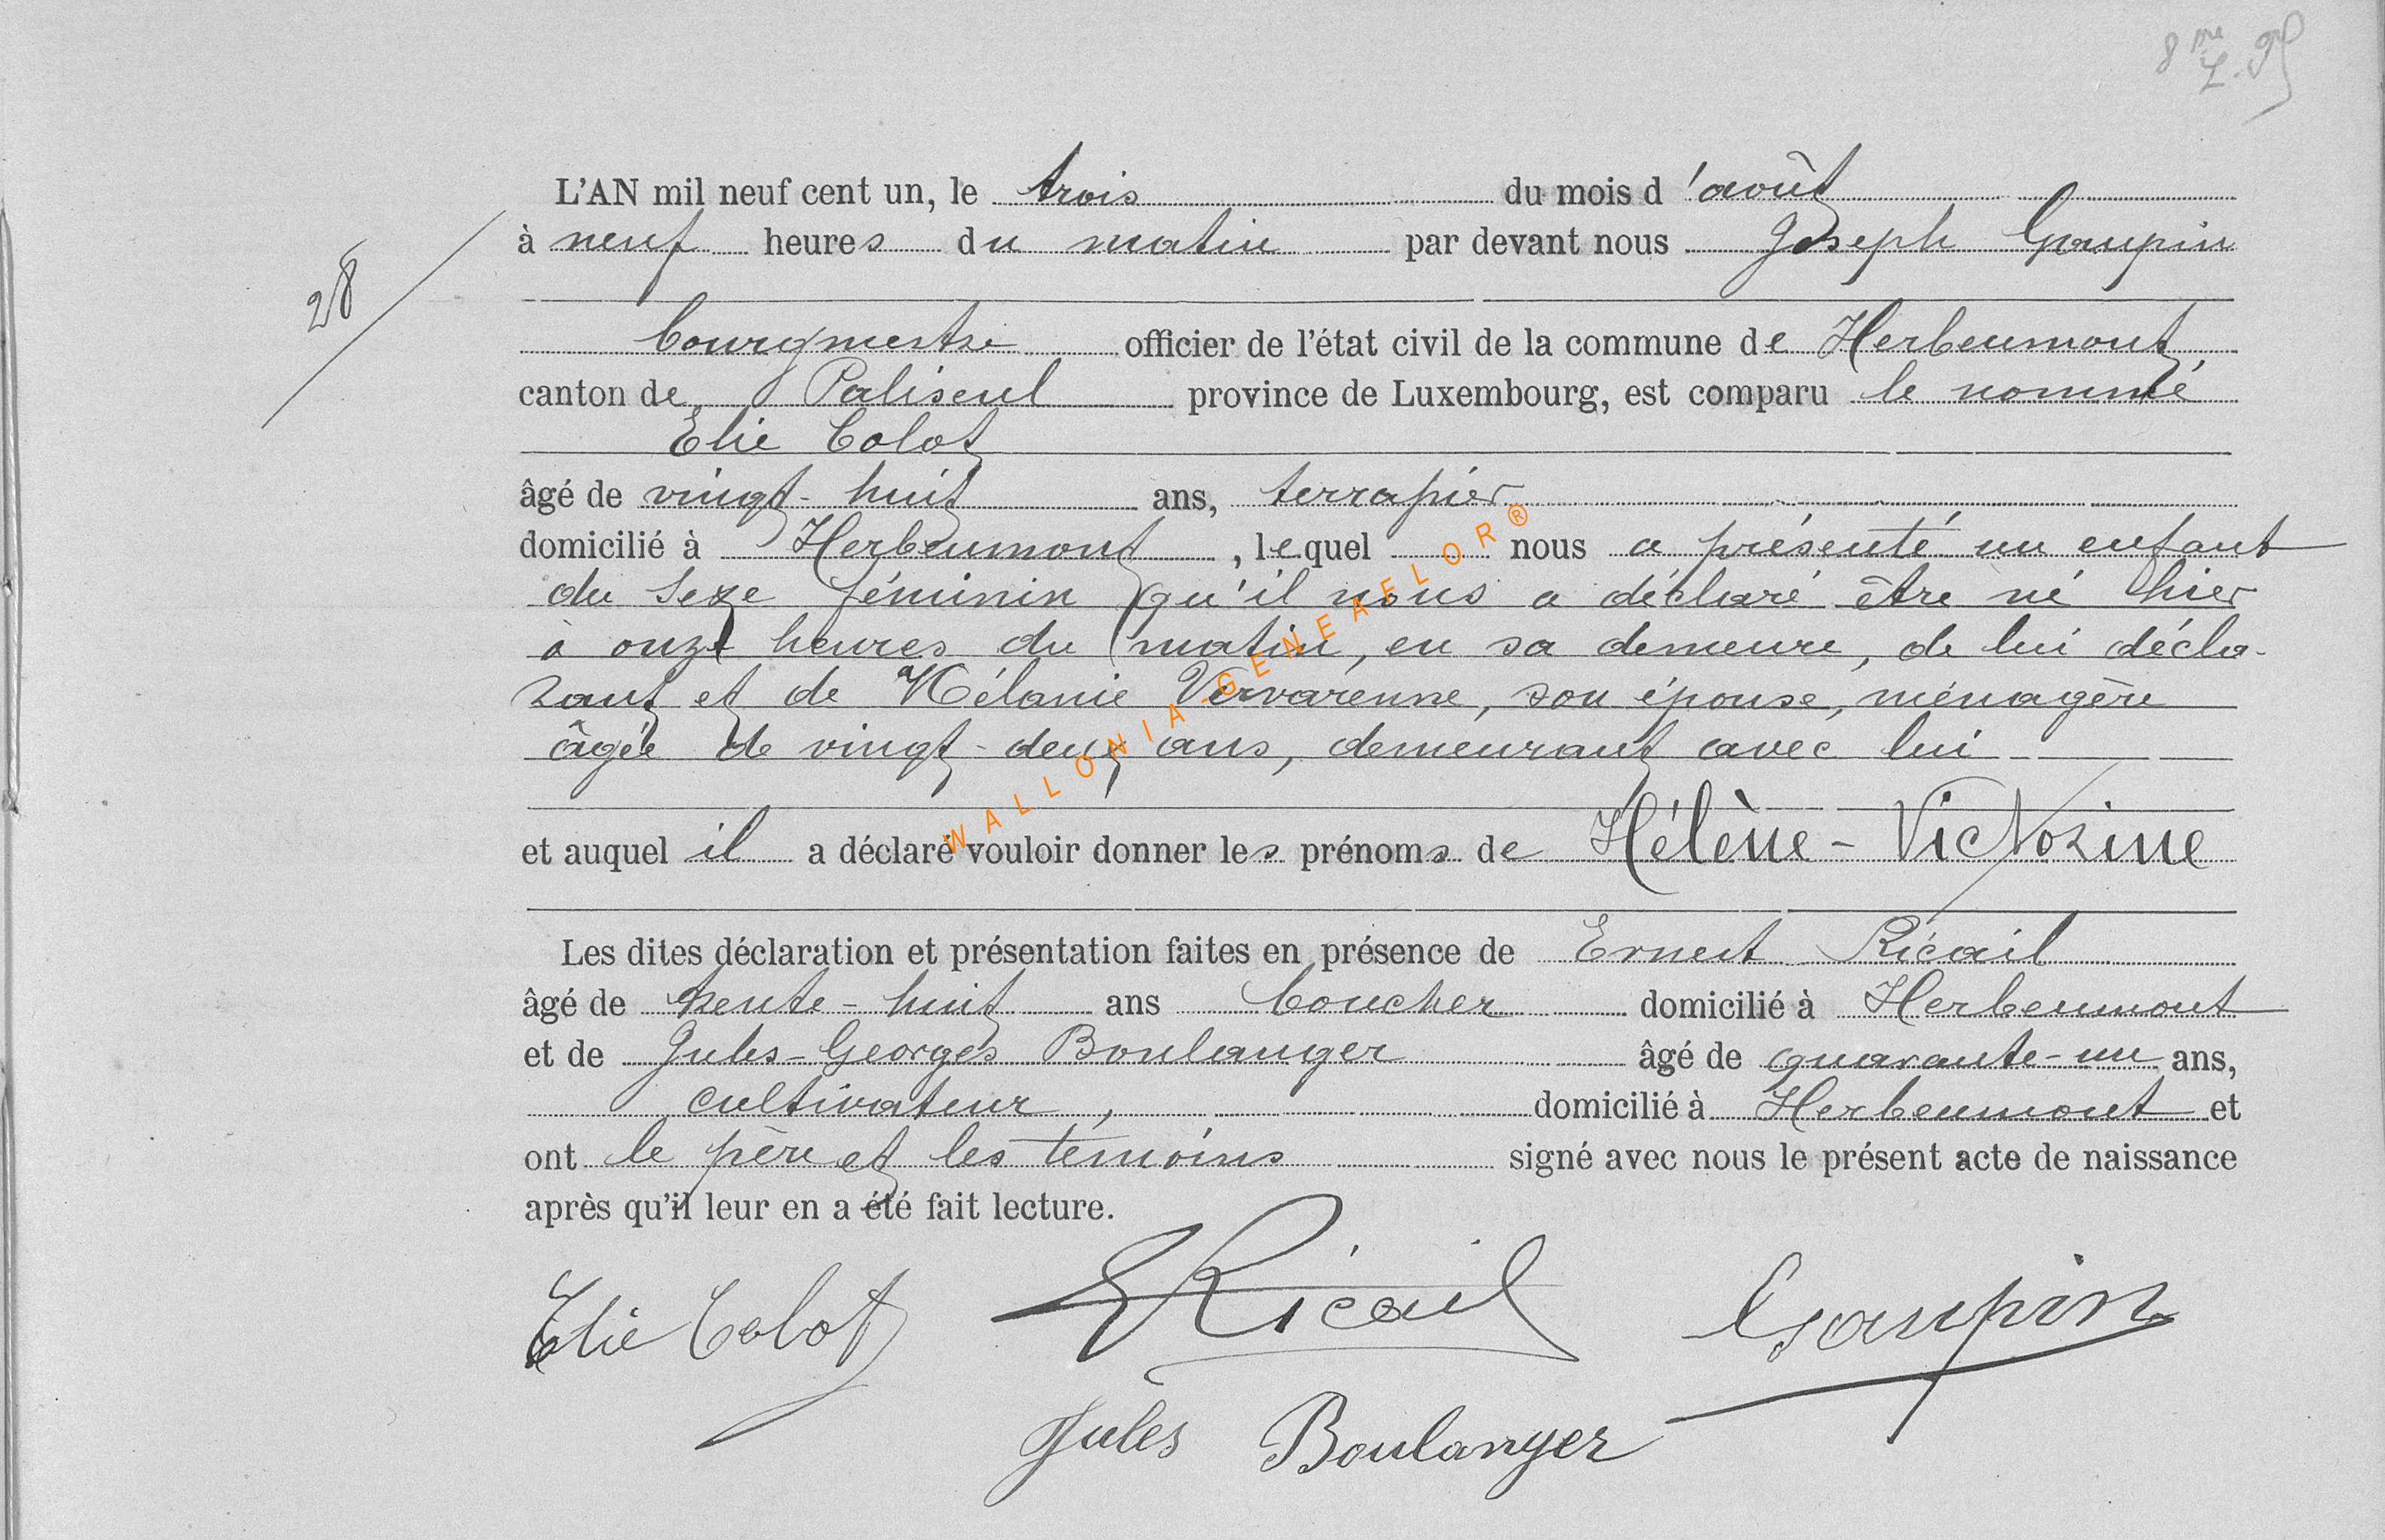 28
L'AN mil neuf cent un, le trois du mois d'août
à neuf heures du matin par devant nous Joseph Gaupin
bourgmestre officier de l'état civil de la commune de Herbeumont
canton de Paliseul province de Luxembourg, est comparu le nommé
Elie Colot
âgé de vingt-huit ans,
domicilié à Herbeumont, lequel nous a présenté un enfant
du sexe féminin qu'il nous a déclaré être né hier
à onze heures du matin, en sa demeure, de lui décla-
rant et de Mélanie Vervarenne, son épouse, ménagère
âgée de vingt-deux ans, demeurant avec lui
et auquel il a déclaré vouloir donner les prénoms de Hélène-Victorine
Les dites déclaration et présentation faites en présence de Ernest Ricail
âgé de trente-huit ans boucher domicilié à Herbeumont
et de Jules-Georges Boulanger âgé de quarante-un ans,
cultivateur, domicilié à Herbeumont et
ont le père et les témoins signé avec nous le présent acte de naissance
après qu'il leur en a été fait lecture.
Elie Colot ERicail Gaupin
Jules Boulanger
WALLONIA-GENEAFLOR®